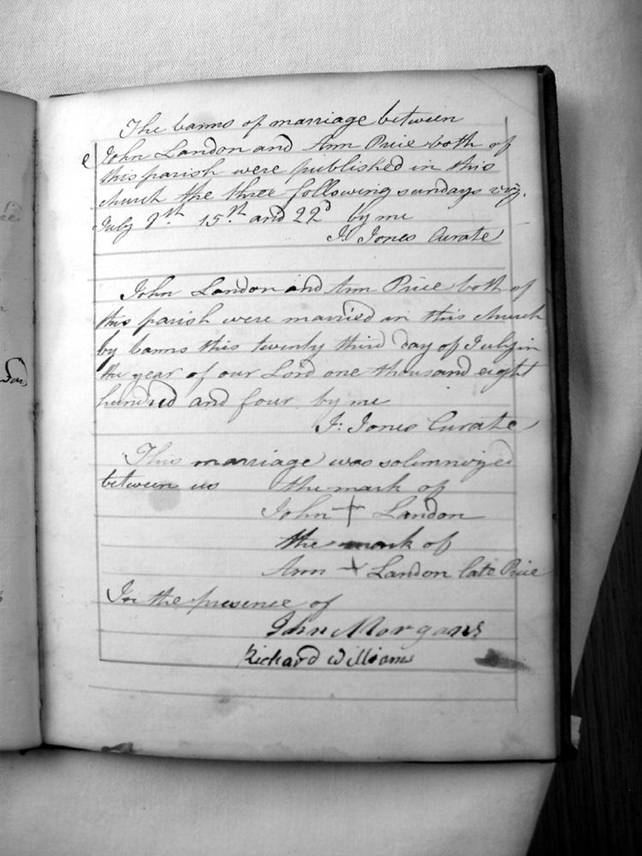 The banns of marriage between
John Landon and Ann Price both of
this parish were published in this
church the three following sundays viz.
July 8th 15th and 22d by me
J: Jones Curate
John Landon and Ann Price both of
this parish were married in this church
by banns this twenty third day of July in
the year of our Lord one thousand eight
hundred and four by me
J: Jones Curate
This marriage was solemnized
between us the mark of
John + Landon
the mark of
Ann + Landon late Price
In the presence of
John Morgans
Richard Williams